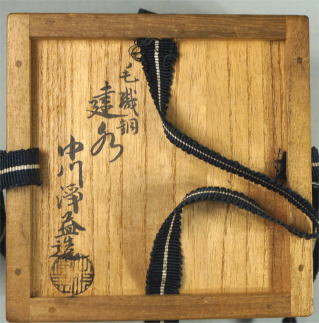 毛織銅
建水
中川淨益造